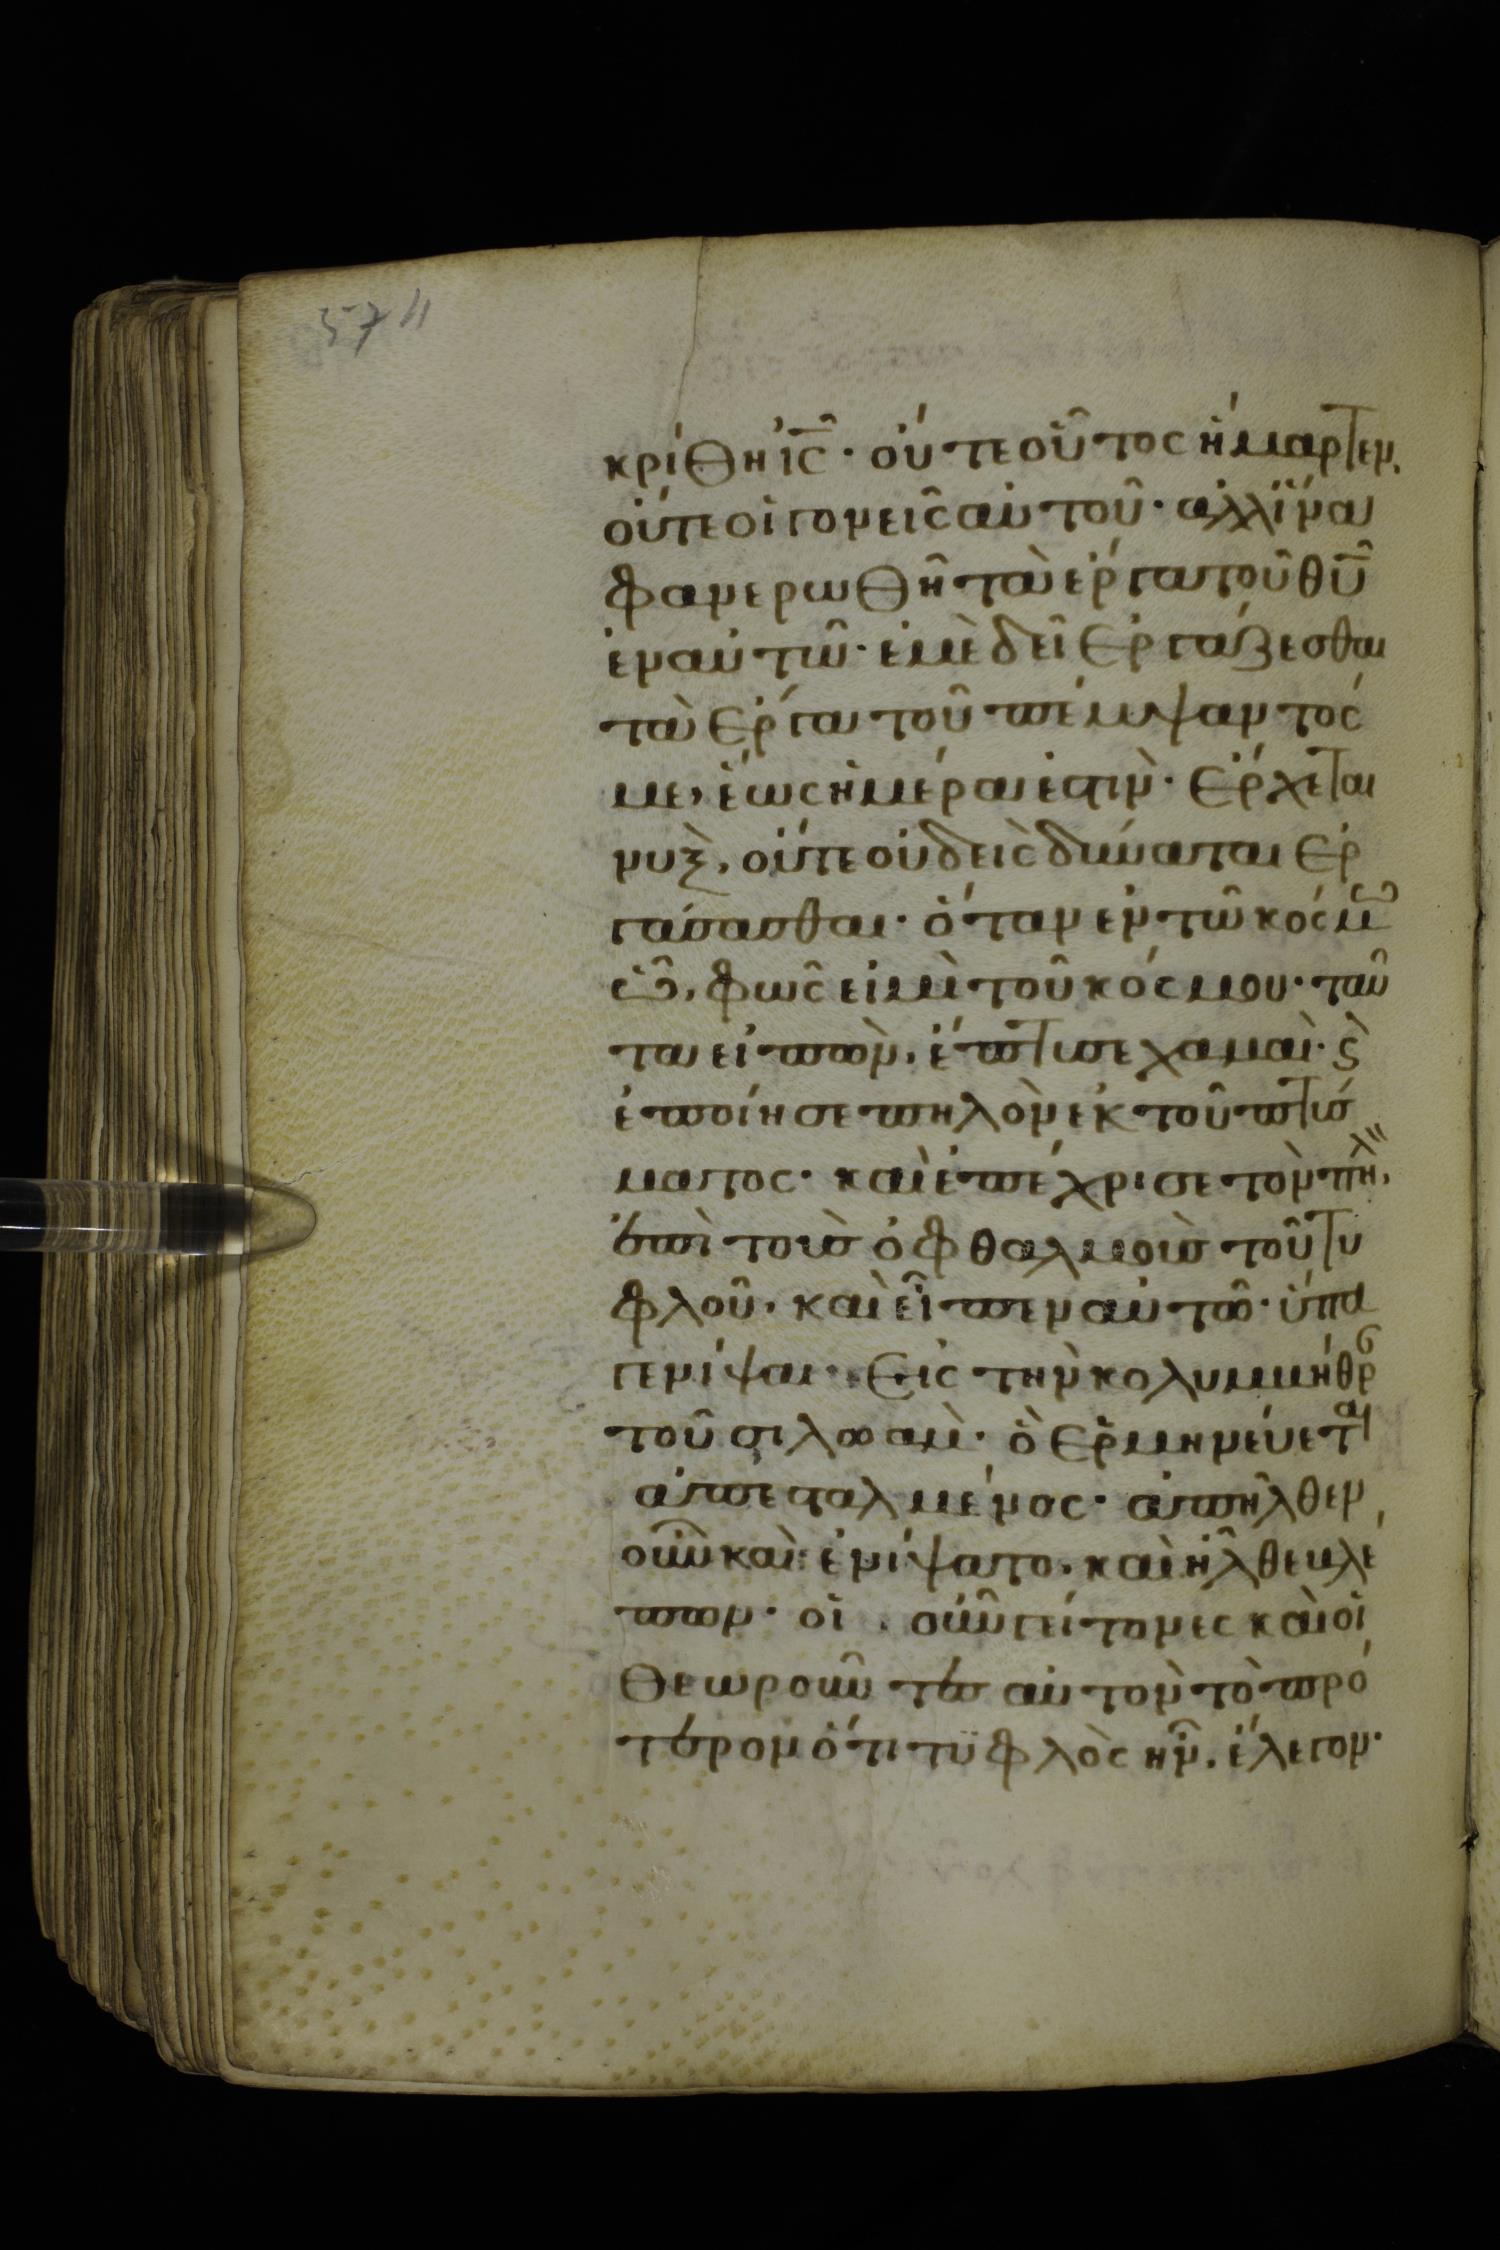 κρίθη ἰς̅· οὔτε οὗτος ἥμαρτεν,
οὔτε οἱ γονεῖς αὐτοῦ· ἀλλ ἵνα
φανερωθῆ τὰ ἔργα τοῦ θυ̅
ἐν αὐτῶ· ἐμὲ δεῖ ἐργάζεσθαι
τὰ ἔργα τοῦ πέμψαντός
με, ἕως ἡμέρα ἐστὶν· ἔρχεται
νυξ, οὔτε οὐδεὶς δύναται ἐρ
γάσασθαι· ὅταν ἐν τῶ κόσμω
ὦ, φῶς εἰμὶ τοῦ κόσμου· ταῦ
τα εἰπὼν, ἔπτυσε χαμαὶ· ϛ
ἐποίησε πηλὸν ἐκ τοῦ πτύσ
ματος· καὶ ἐπέχρισε τὸν πηλ,
ἐπὶ τοὺς ὀφθαλμοὺς τοῦ τυ
φλοῦ, καὶ εἶπεν αὐτῶ· ὕπα
γε νίψαι εἰς τὴν κολυμβήθρ
τοῦ σιλωαμ· ὃ ἑρμηνεύεται
ἀπεσταλμένος· ἀπῆλθεν
οὖν καὶ ἐνίψατο, καὶ ἦλθε βλέ
πων· οἱ οὖν γείτονες καὶ οἱ
θεωροῦντες αὐτὸν τὸ πρό
τερον ὅτι τϋφλὸς ἦν, ἔλεγον·